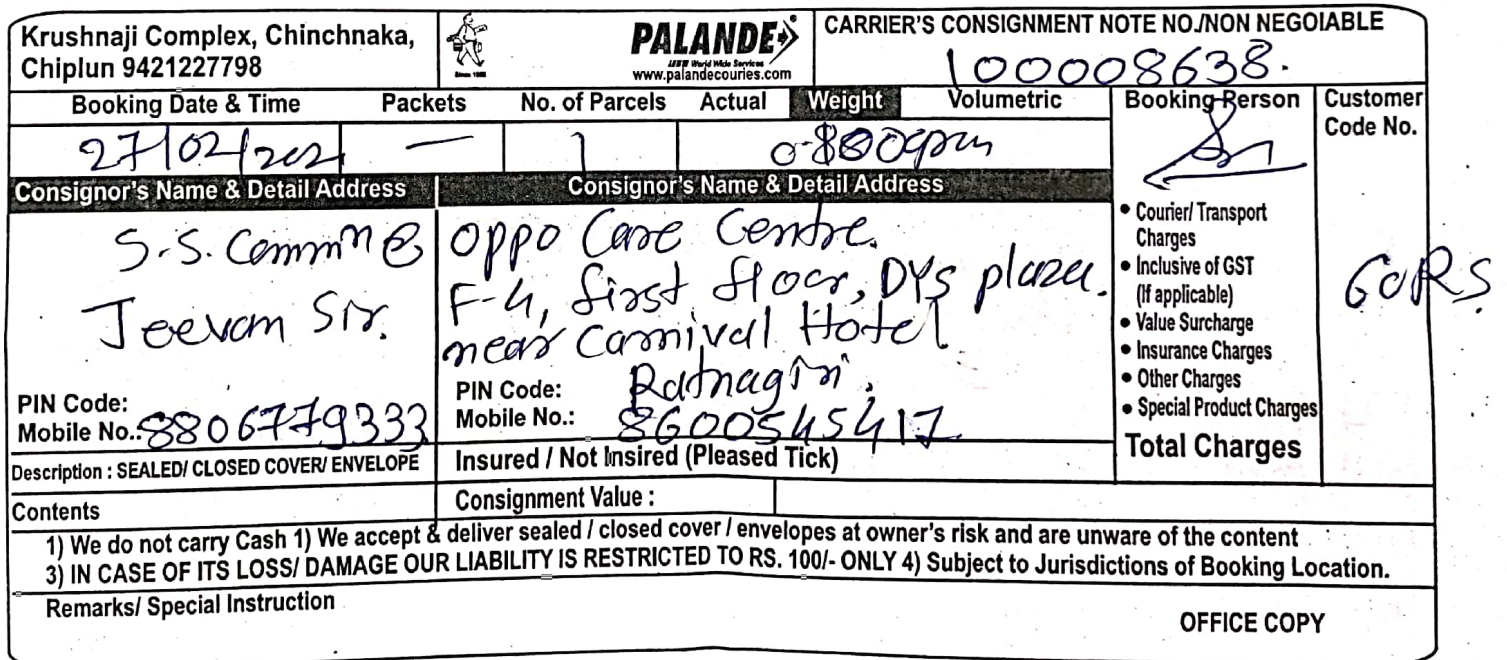 Krushnaji Complex, Chinchnaka,
Chiplun 9421227798
Since 1968
PALANDE
World Wide Services
www.palandecouries.com
CARRIER'S CONSIGNMENT NOTE NO./NON NEGOIABLE
100008638.
Booking Date & Time Packets No. of Parcels Actual Weight Volumetric Booking Person Customer Code No.
27/02/202 — 1 0-800gm
Consignor's Name & Detail Address
S.S. Comm
Jeevan Sir.
PIN Code:
Mobile No.: 8806779333
Consignor's Name & Detail Address
Oppo Care Centre.
F-4, first floor, DYS plaza.
near Carnival Hotel
Ratnagiri.
PIN Code:
Mobile No.: 8600545417
• Courier/ Transport
Charges
• Inclusive of GST
(If applicable)
• Value Surcharge
• Insurance Charges
• Other Charges
• Special Product Charges
Total Charges
60RS
Description : SEALED/ CLOSED COVER/ ENVELOPE
Insured / Not Insired (Pleased Tick)
Contents
Consignment Value :
1) We do not carry Cash 1) We accept & deliver sealed / closed cover / envelopes at owner's risk and are unware of the content
3) IN CASE OF ITS LOSS/ DAMAGE OUR LIABILITY IS RESTRICTED TO RS. 100/- ONLY 4) Subject to Jurisdictions of Booking Location.
Remarks/ Special Instruction
OFFICE COPY